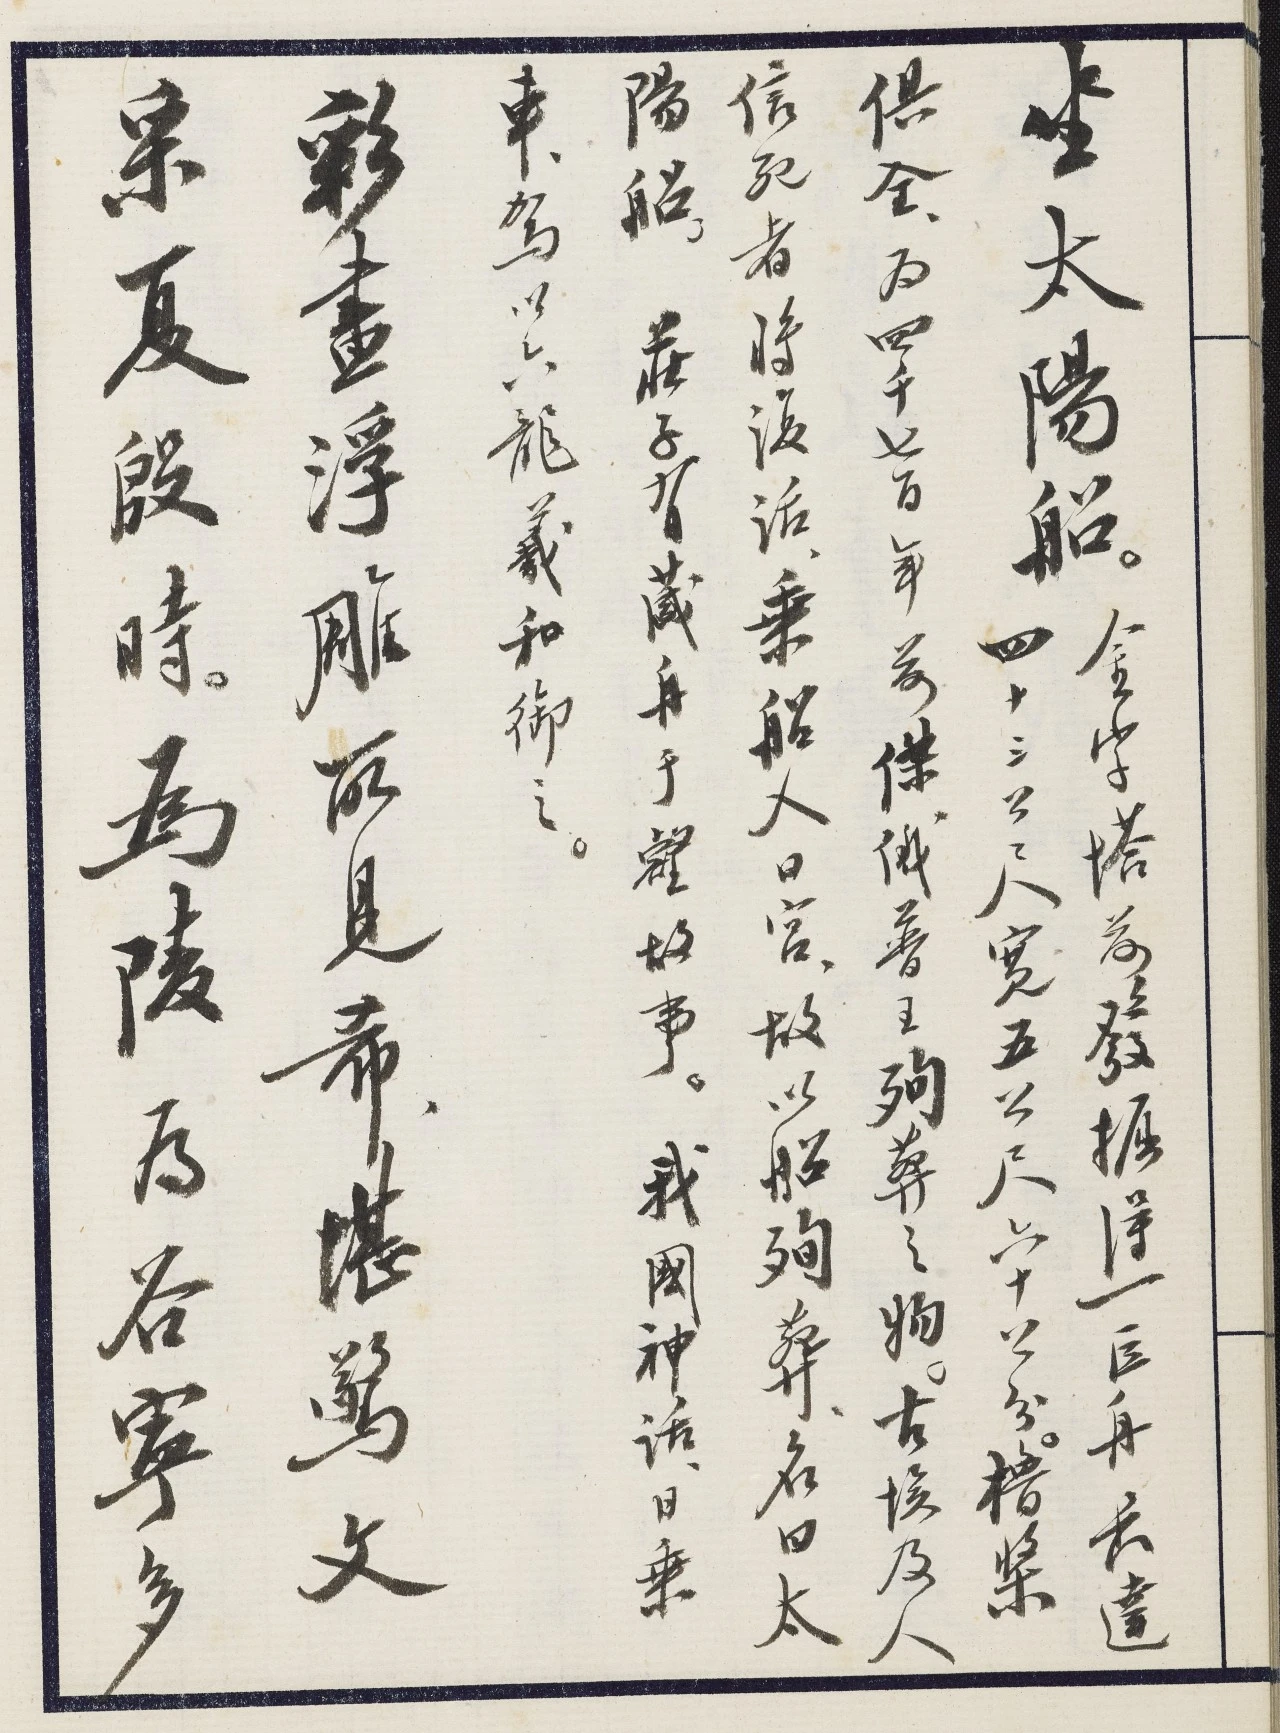 坐太陽船。
金字塔前發掘得一巨舟長達
四十三公尺寬五公尺六十公分。櫓槳
俱全、为四千七百年前傑俄普王殉葬之物。古埃及人
信死者將復活、乘船入日宮、故以船殉葬、名曰太
陽船。莊子有藏舟于壑故事。我國神話、日乘
車、驾以六龍羲和御之。
彩畫浮雕所見希、堪驚文
采夏殷時。為陵为谷寧多